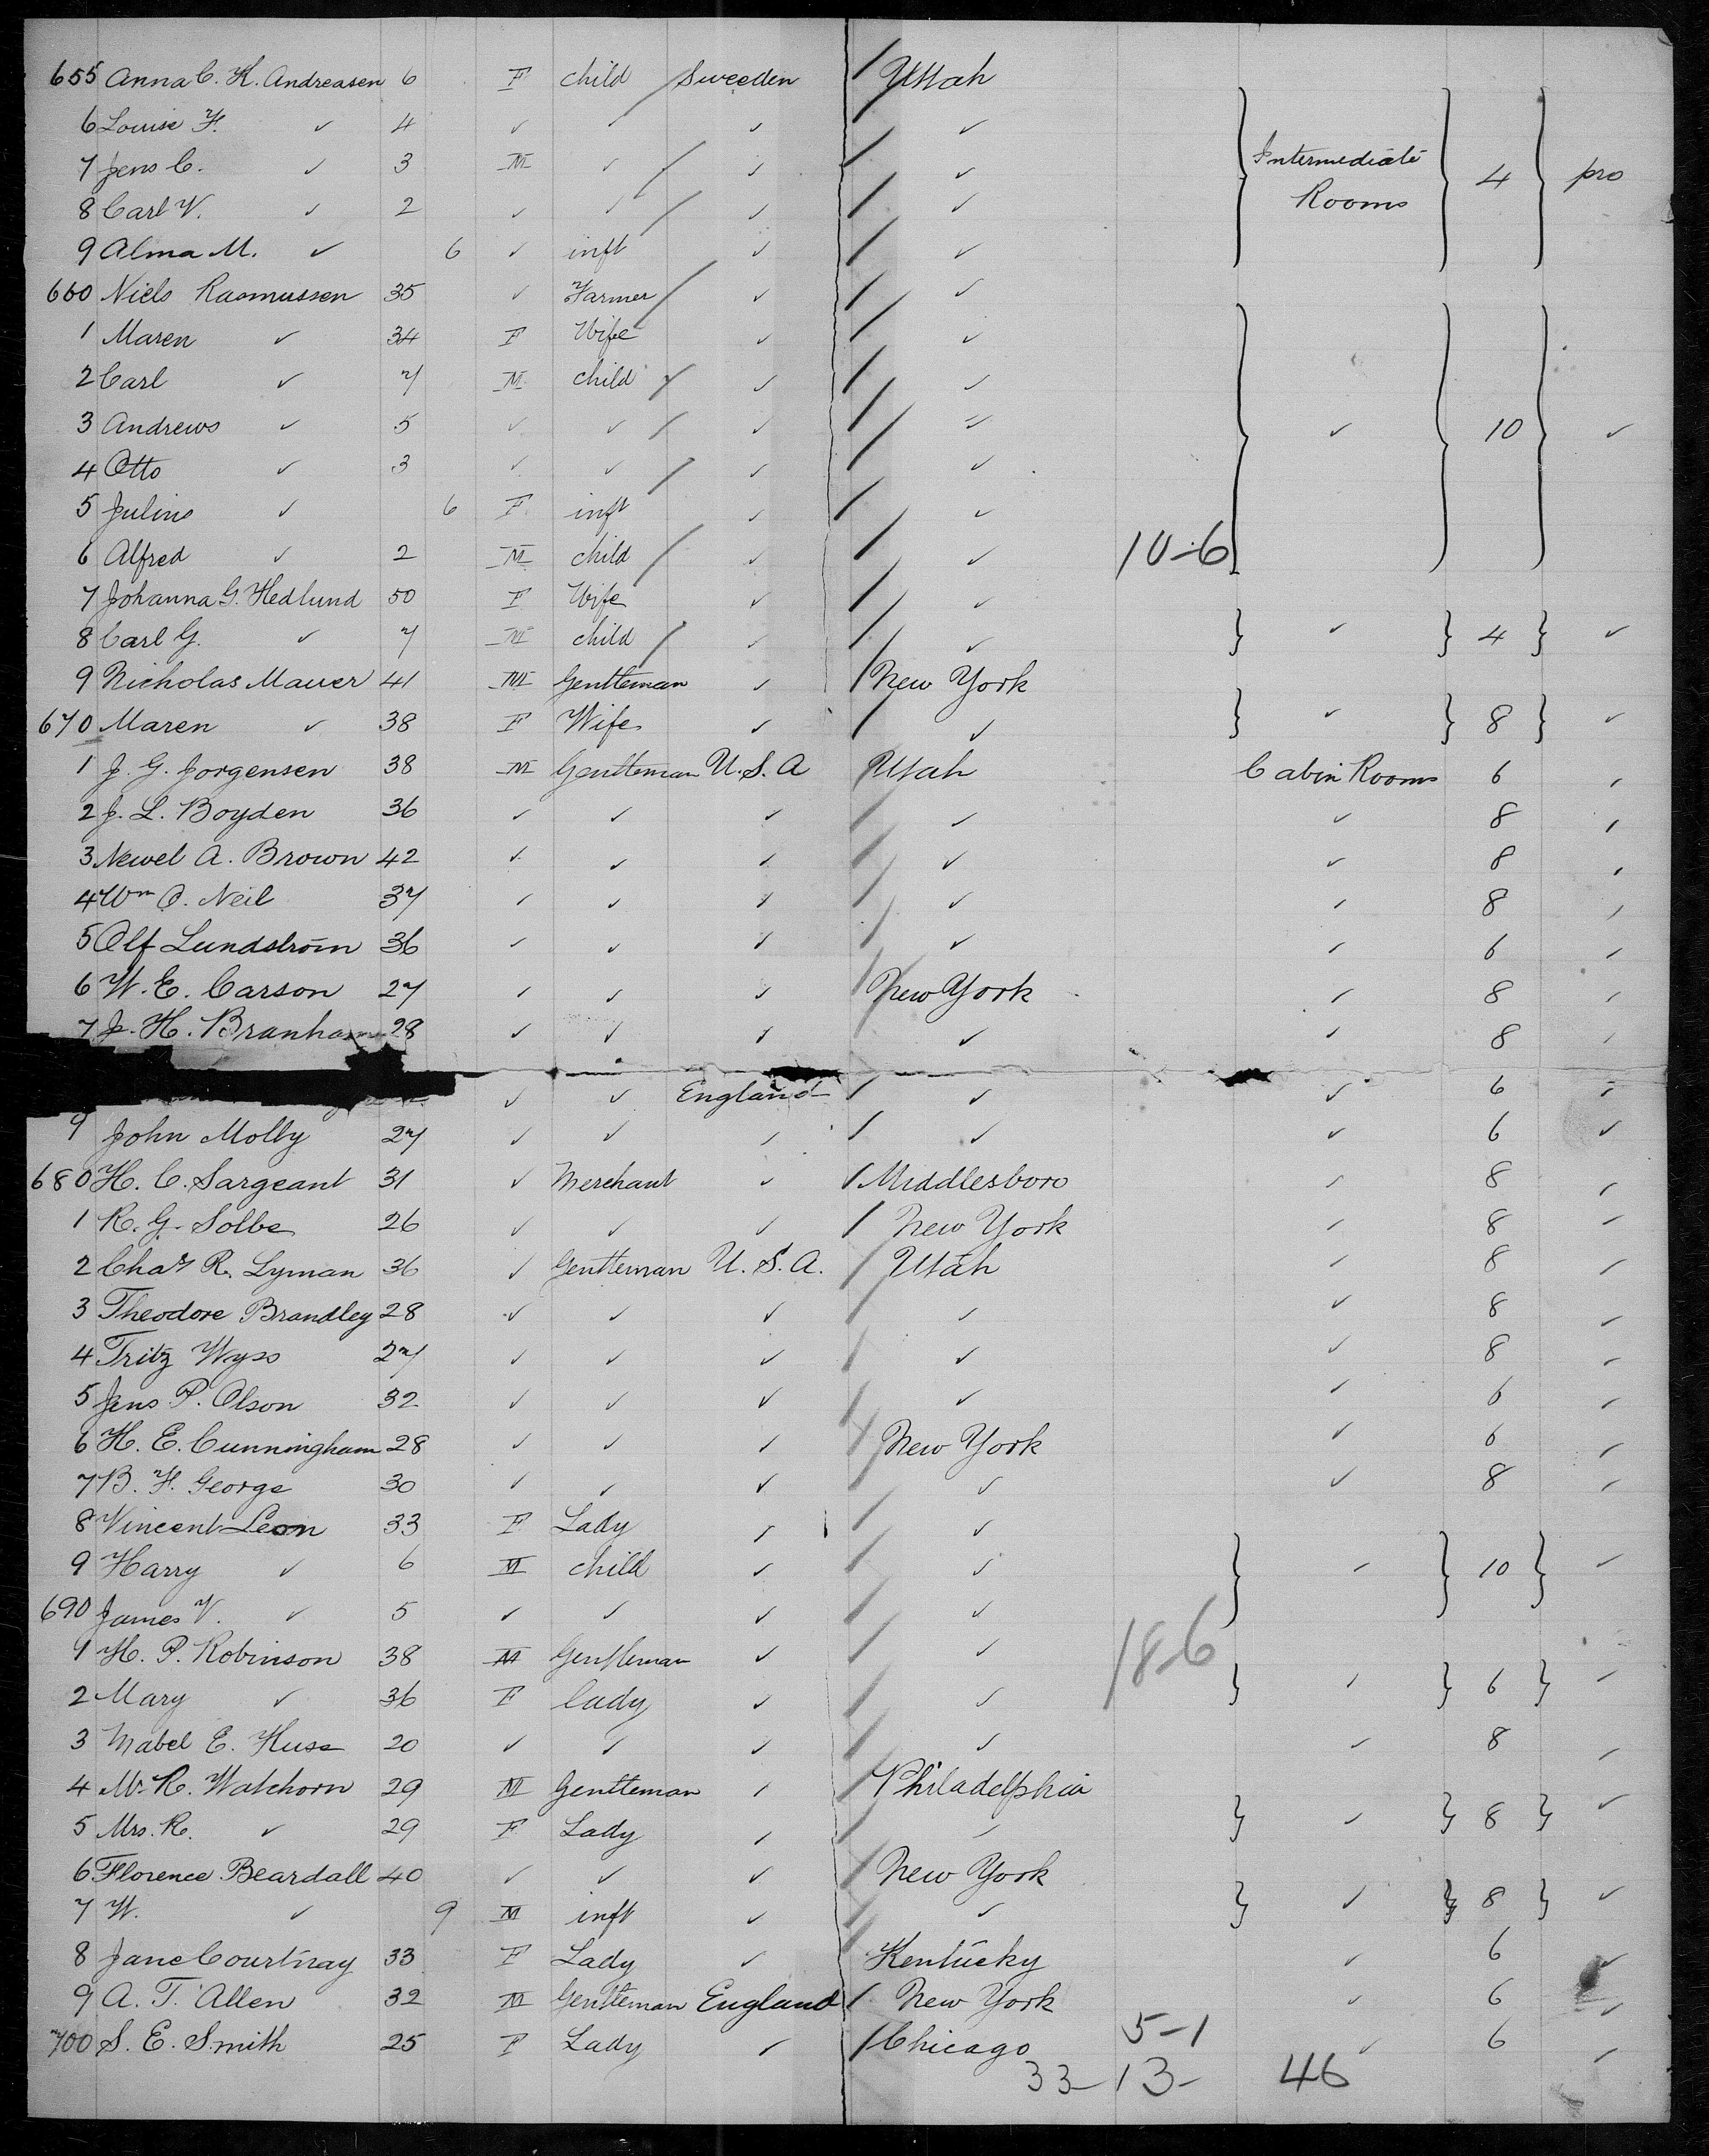 655 Anna C. K. Andreasen 6 F child Sweeden / Uttah
6 Louise F. ✓ 4 ✓ ✓ ✓ / ✓
7 Jens C. ✓ 3 M ✓ / ✓ / ✓ Intermediate Rooms 4 pro
8 Carl V. ✓ 2 ✓ ✓ / ✓ / ✓
9 Alma M. ✓ 6 ✓ inft ✓ / ✓
660 Niels Rasmussen 35 ✓ Farmer / ✓ / ✓
1 Maren ✓ 34 F Wife ✓ / ✓
2 Carl ✓ 7 M child ✓ / ✓
3 Andrews ✓ 5 ✓ ✓ / ✓ / ✓ ✓ 10 ✓
4 Otto ✓ 3 ✓ ✓ / ✓ / ✓
5 Julius ✓ 6 F inft ✓ / ✓
6 Alfred ✓ 2 M child / ✓ / ✓ 10-6
7 Johanna G. Hedlund 50 F Wife ✓ / ✓
8 Carl G. ✓ 7 M child / ✓ / ✓ ✓ 4 ✓
9 Nicholas Mauer 41 M Gentleman ✓ / New York
670 Maren ✓ 38 F Wife ✓ / ✓ ✓ 8 ✓
1 J. G. Jorgensen 38 M Gentleman U.S.A Utah Cabin Rooms 6 ✓
2 J. L. Boyden 36 ✓ ✓ ✓ / ✓ ✓ 8 ✓
3 Newel A. Brown 42 ✓ ✓ ✓ / ✓ ✓ 8 ✓
4 Wm O. Neil 37 ✓ ✓ ✓ / ✓ ✓ 8 ✓
5 Olf Lundström 36 ✓ ✓ ✓ / ✓ ✓ 6 ✓
6 W. E. Carson 27 ✓ ✓ ✓ / New York ✓ 8 ✓
7 J. H. Branham 28 ✓ ✓ ✓ / ✓ ✓ 8 ✓
✓ ✓ England / ✓ ✓ 6 ✓
9 John Molly 27 ✓ ✓ ✓ / ✓ ✓ 6 ✓
680 H. C. Sargeant 31 ✓ Merchant ✓ / Middlesboro ✓ 8 ✓
1 R. G. Solbe 26 ✓ ✓ ✓ / New York ✓ 8 ✓
2 Chas R. Lyman 36 ✓ Gentleman U.S.A. / Utah ✓ 8 ✓
3 Theodore Brandley 28 ✓ ✓ ✓ / ✓ ✓ 8 ✓
4 Fritz Wyss 27 ✓ ✓ ✓ / ✓ ✓ 8 ✓
5 Jens P. Olson 32 ✓ ✓ ✓ / ✓ ✓ 6 ✓
6 H. E. Cunningham 28 ✓ ✓ ✓ / New York ✓ 6 ✓
7 B. F. George 30 ✓ ✓ ✓ / ✓ ✓ 8 ✓
8 Vincent Leon 33 F Lady ✓ / ✓
9 Harry ✓ 6 M child ✓ / ✓ ✓ 10 ✓
690 James V. ✓ 5 ✓ ✓ ✓ / ✓
1 H. P. Robinson 38 M Gentleman ✓ / ✓ 18-6
2 Mary ✓ 36 F lady ✓ / ✓ ✓ 6 ✓
3 Mabel E. Huse 20 ✓ ✓ ✓ / ✓ ✓ 8 ✓
4 Mr. R. Watchorn 29 M Gentleman ✓ / Philadelphia
5 Mrs. R. ✓ 29 F Lady ✓ / ✓ ✓ 8 ✓
6 Florence Beardall 40 ✓ ✓ ✓ / New York
7 W. ✓ 9 M inft ✓ / ✓ ✓ 8 ✓
8 Jane Courtnay 33 F Lady ✓ / Kentucky ✓ 6 ✓
9 A. T. Allen 32 M Gentleman England / New York ✓ 6 ✓
700 S. E. Smith 25 F Lady ✓ / Chicago 5-1 ✓ 6 ✓
33-13- 46